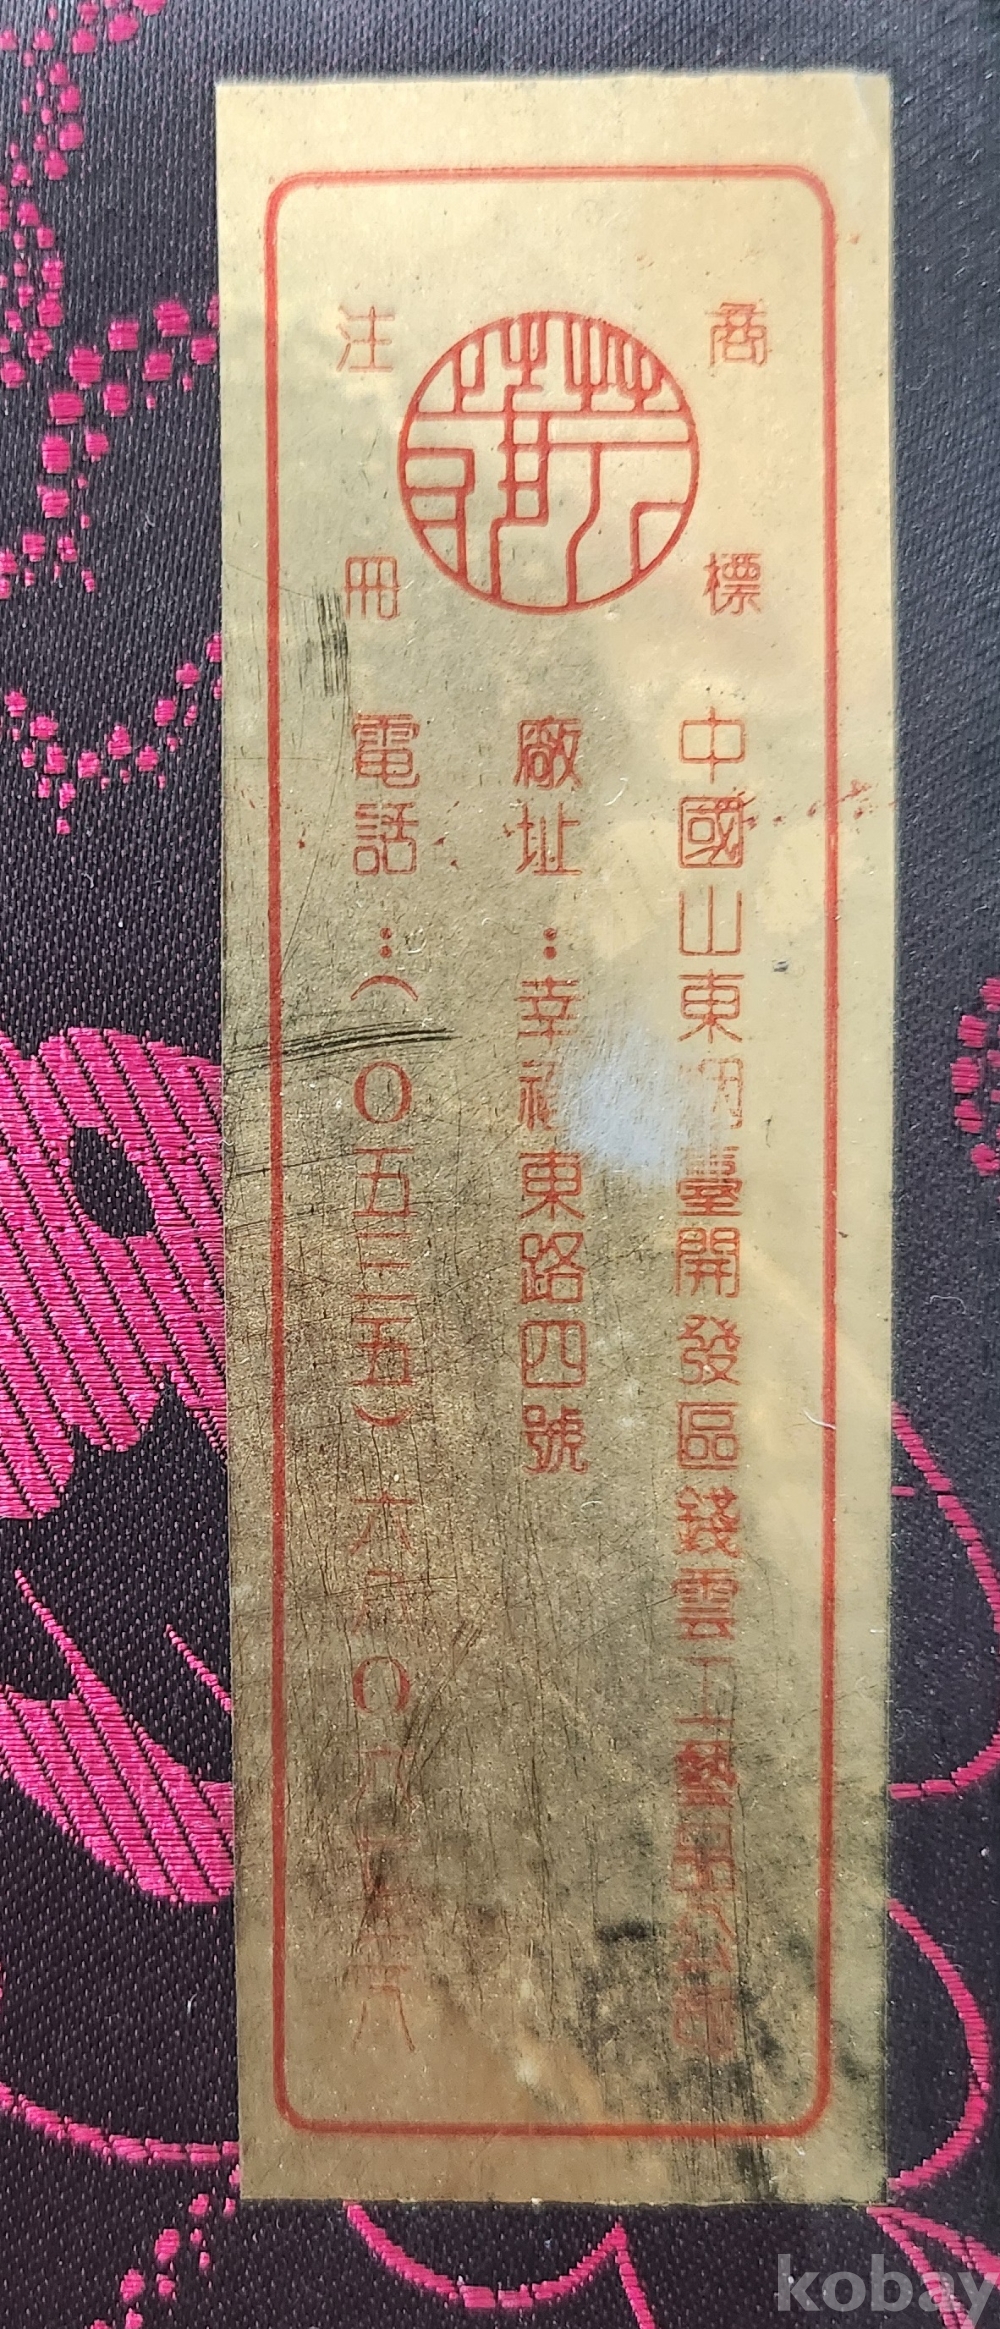 商標
注冊
中國山東烟臺開發區錢雲工藝品
廠址：幸福東路四號
電話：（〇五三五）六六〇